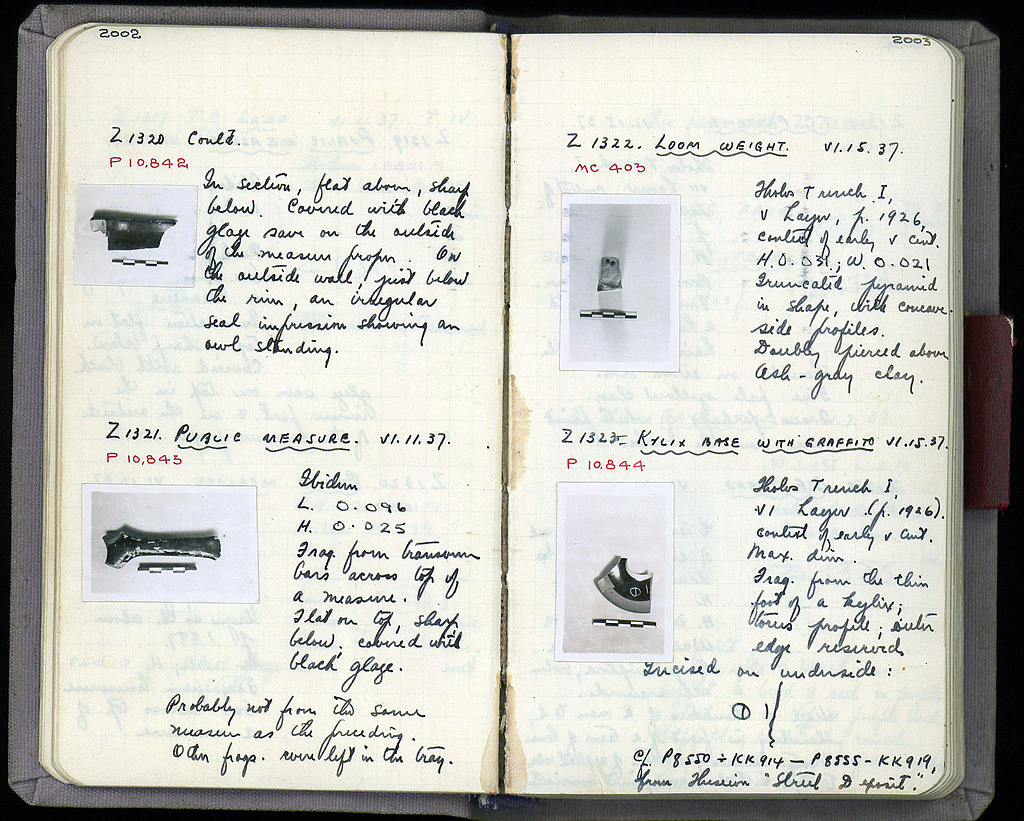 2002
Z 1320 Cont'd.
P 10,842
In section, flat above, sharp
below. Covered with black
glaze save on the outside
of the measure proper. On
the outside wall, just below
the rim, an irregular
seal impression showing an
owl standing.
Z 1321. PUBLIC MEASURE. VI.11.37.
P 10,843
Ibidem
L. 0.096
H. 0.025
Frag. from transverse
bars across top of
a measure.
Flat on top, sharp
below, covered with
black glaze.
Probably not from the same
measure as the preceding.
Other frags. were left in the tray.
2003
Z 1322. LOOM WEIGHT. VI.15.37.
MC 403
Tholos Trench I,
V Layer, p. 1926,
context of early V cent.
H. 0.031, W. 0.021
Truncated pyramid
in shape, with concave
side profiles.
Doubly pierced above
Ash-gray clay.
Z 1323 KYLIX BASE WITH GRAFFITO VI.15.37.
P 10,844
Tholos Trench I,
VI Layer (p. 1926).
context of early V cent.
Max. dim.
Frag. from the thin
foot of a kylix;
torus profile; outer
edge reserved.
Incised on underside:
cf P8550 - KK914 — P8555 - KK919,
from Hussein "Street Deposit".